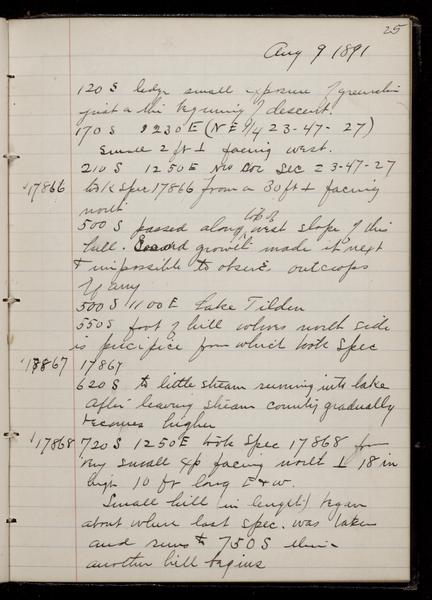 25
Aug 9 1891
120 S ledge small exposure of greenstone
just at the beginning of descent.
170 S 1230 E (NE 1/4 23-47-27)
Small 2 ft ⊥ facing west.
210 S 1250 E NW Cor Sec 23-47-27
17866 took spec 17866 from a 30 ft ⊥ facing
north
500 S passed along top of west slope of this
hill. Second growth made it next
to impossible to observe outcrops
if any
500 S 1100 E Lake Tilden
550 S foot of hill whose north side
is precipice from which took spec
17867 17867
620 S to little stream running into lake
After leaving stream country gradually
becomes higher
17868 720 S 1250 E took Spec 17868 from
very small exp facing north ⊥ 18 in
high 10 ft long E & W.
Small hill (in length) began
about where last spec. was taken
and runs to 750 S then
another hill begins